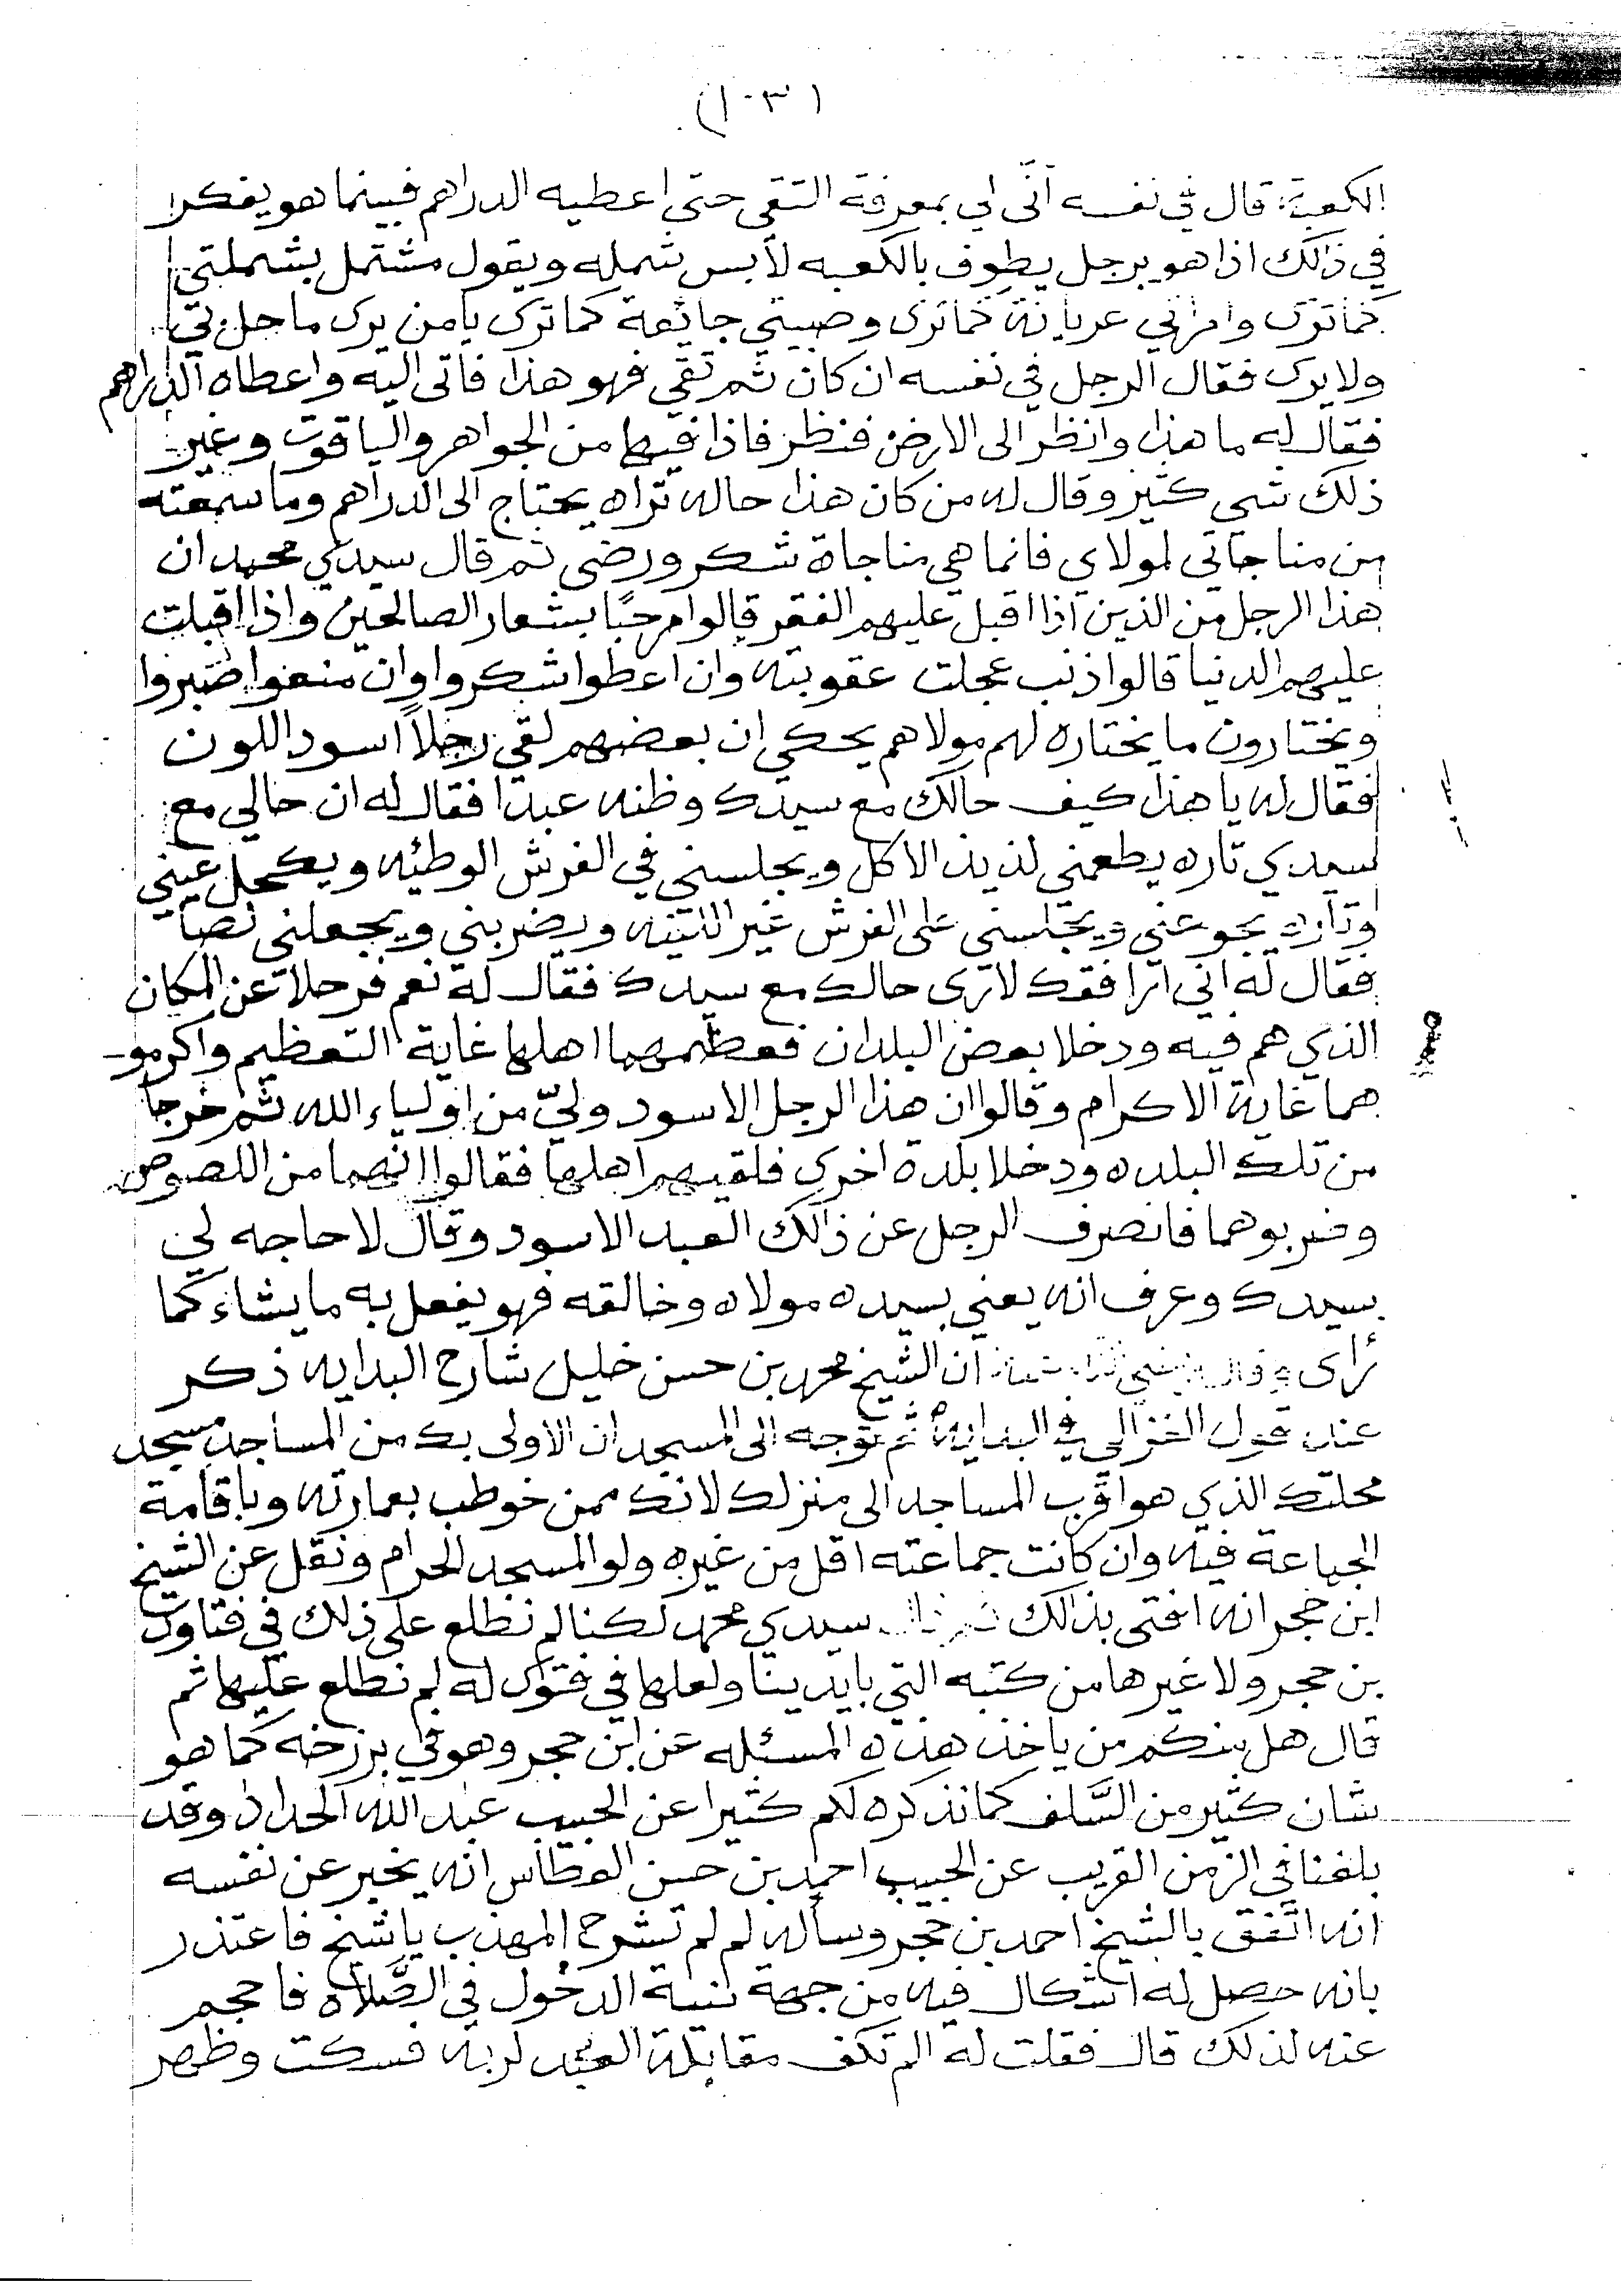 (١٠٣)
الكعبة قال في نفسه أنّى لي بمعرفة التقي حتى اعطيه الدراهم فبينما هو يفكر
في ذالك اذا هو برجل يطوف بالكعبه لابس شمله ويقول مشتمل بشملتي
كما ترى وامرأتي عريانة كما ترى وصبيتي جائعة كما ترى يا من يرى ما حل بي
ولا يرى فقال الرجل في نفسه ان كان ثم تقي فهو هذا فاتى اليه واعطاه الدراهم
فقال له ما هذا وانظر الى الارض فنظر فاذا فيها من الجواهر والياقوت وغير
ذلك شي كثير وقال له من كان هذا حاله تراه يحتاج الى الدراهم وما سمعته
من مناجاتي لمولاي فانما هي مناجاة شكر ورضى ثم قال سيدي محمد ان
هذا الرجل من الذين اذا اقبل عليهم الفقر قالوا مرحبًا بشعار الصالحين واذا اقبلت
عليهم الدنيا قالوا ذنب عجلت عقوبته وان اعطوا شكروا وان منعوا صبروا
ويختارون ما يختاره لهم مولاهم يحكى ان بعضهم لقي رجلاً اسود اللون
فقال له يا هذا كيف حالك مع سيدك وظنه عبدا فقال له ان حالي مع
سيدي تاره يطعمني لذيذ الاكل ويجلسني في الفرش الوطئيه ويكحل عيني
وتاره يجوعني ويجلسني على الفرش غير اللينه ويضربني ويجعلني
فقال له اني ارافقك لارى حالك مع سيدك فقال له نعم فرحلا عن المكان
الذي هم فيه ودخلا بعض البلدان فعظمهما اهلها غاية التعظيم واكرمو
هما غاية الاكرام وقالوا ان هذا الرجل الاسود وليّ من اولياء الله ثم خرجا
من تلك البلده ودخلا بلدة اخرى فلقيهم اهلها فقالوا انهما من اللصوص
وضربوهما فانصرف الرجل عن ذالك العبد الاسود وقال لا حاجه لي
بسيدك وعرف انه يعني بسيده مولاه وخالقه فهو يفعل به ما يشاء كما
رأى ان الشيخ محمد بن حسن خليل شارح البدايه ذكر
عند قول الغزالي في البدايه ثم توجه الى المسجد ان الاولى بك من المساجد مسجد
محلتك الذي هو اقرب المساجد الى منزلك لانك ممن خوطب بعمارته وباقامة
الجماعة فيه وان كانت جماعته اقل من غيره ولو المسجد الحرام ونقل عن الشيخ
ابن حجر انه افتى بذالك سيدي محمد لكنا لم نطلع على ذلك في فتاوى
بن حجر ولا غيرها من كتبه التي بايدينا ولعلها في فتوى له لم نطلع عليها ثم
قال هل منكم من ياخذ هذه المسئله عن ابن حجر وهو في برزخه كما هو
شان كثير من السَّلف كما نذكره لكم كثيرا عن الحبيب عبد الله الحداد وقد
بلغنا في الزمن القريب عن الحبيب احمد بن حسن العطاس انه يخبر عن نفسه
انه اتفق بالشيخ احمد بن حجر وسأله لم لم تشرح المهذب يا شيخ فاعتذر
بانه حصل له اشكال فيه من جهة نية الدخول في الصَّلاه فاحجم
عنه لذلك قال فقلت له الم تكف مقابلة العبد لربه فسكت وظهر